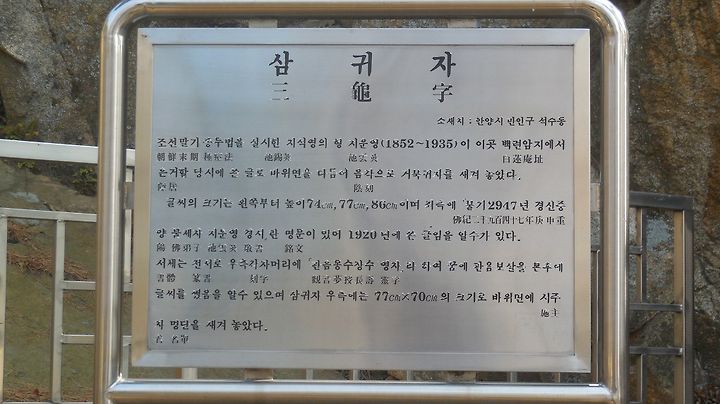 삼 귀 자
三 龜 字
소재지 : 안양시 만안구 석수동
조선말기 종두법을 실시한 지석영의 형 지운영(1852~1935)이 이곳 백련암지에서
朝鮮末期 種痘法 池錫永 池雲英 白蓮庵址
은거할 당시에 쓴 글로 바위면을 다듬어 음각으로 거북귀자를 새겨 놓았다.
隱居 陰刻
글씨의 크기는 왼쪽부터 높이74㎝, 77㎝, 86㎝이며 좌측에 불기2947년 경신중
佛紀二千九百四十七年庚申重
양 불제자 지운영 경서란 명문이 있어 1920년에 쓴 글임을 알수가 있다.
陽 佛弟子 池雲英 敬書 銘文
서체는 전서로 우측각자머리에
書體 篆書 刻字 觀音夢授長壽 靈字
글씨를 썼음을 알수 있으며 삼귀자 우측에는 77㎝×70㎝의 크기로 바위면에 시주
施主
자 명단을 새겨 놓았다.
者 名單